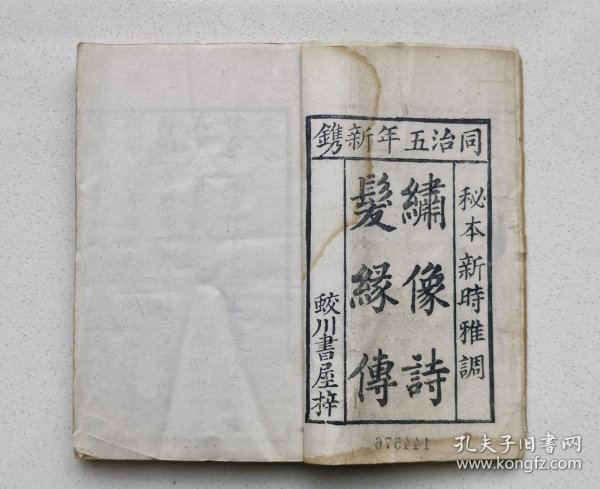 同治五年新鐫
秘本新時雅調
繡像詩
髮緣傳
鮫川書屋梓
144576
孔夫子旧书网
www.kongfz.com